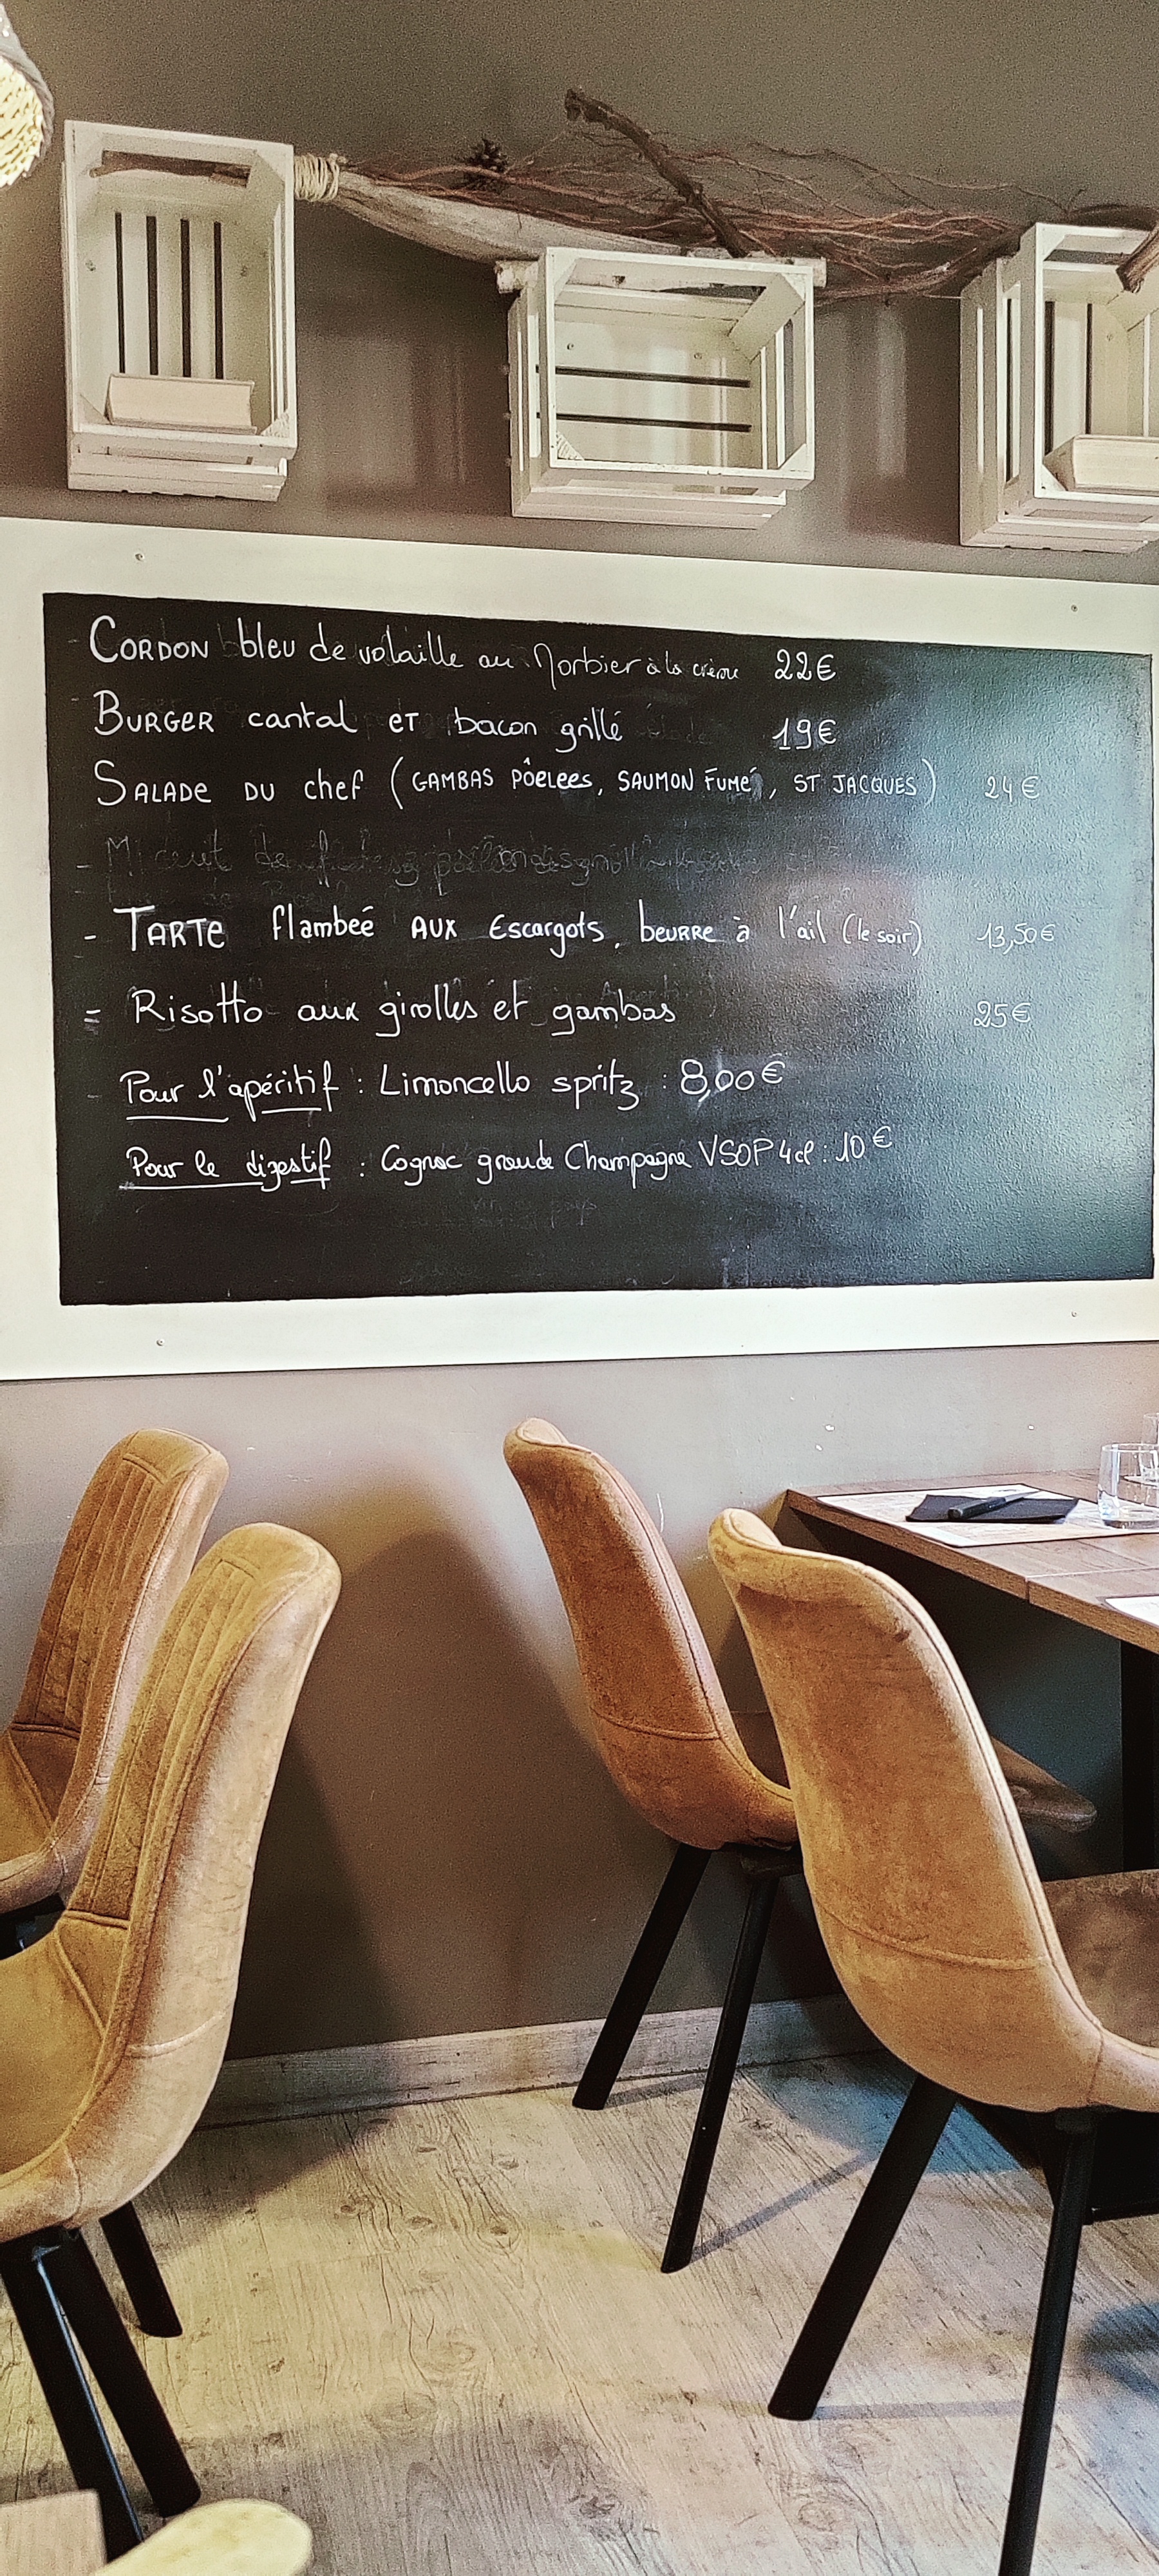 CORDON bleu de volaille au Morbier à la crème 22€
BURGER cantal ET bacon grillé 19€
SALADE DU chef (GAMBAS PÔELEES, SAUMON FUMÉ, ST JACQUES) 24€
- TARTE flambeé AUX Escargots, beurre à l'ail (le soir) 13,50€
= Risotto aux girolles et gambas 25€
- Pour l'apéritif : Limoncello spritz : 8,00€
Pour le digestif : Cognac grande Champagne VSOP 4cl : 10€